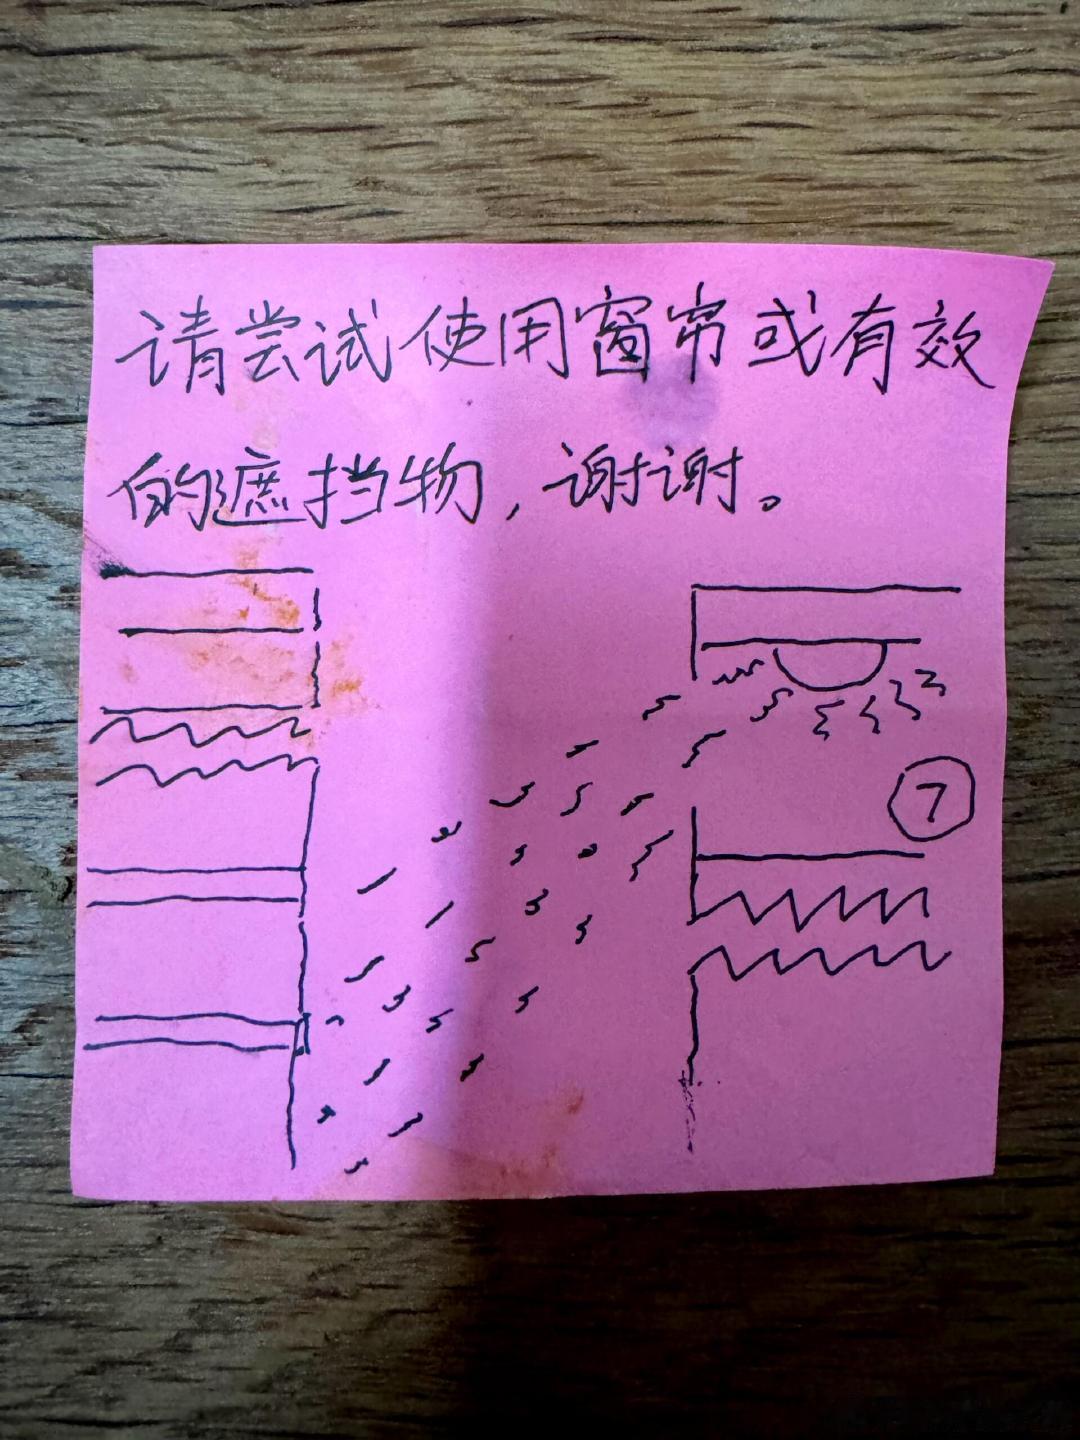 请尝试使用窗帘或有效
的遮挡物，谢谢。
7